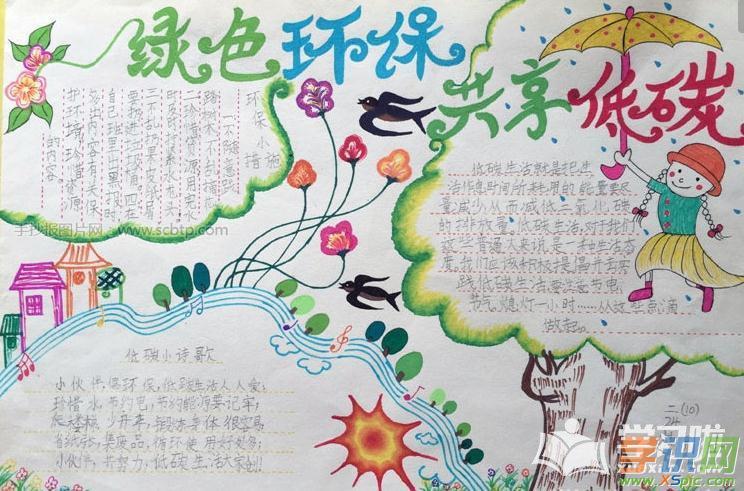 绿色环保
共享低碳
环保小措施
一、不随意践
踏树木、不乱摘花
二、珍惜资源，用完水
时及时关紧水龙头
三、不乱扔果皮纸屑
要扔进垃圾桶、四、在
自己班里出黑报时
多出内容有关保
护环境、珍惜资源
的内容。
手抄报图片网 - www.scbtp.com
低碳生活就是把生
活作息时间所耗用的能量要尽
量减少，从而减低二氧化碳
的排放量。低碳生活，对于我们
这些普通人来说是一种生活态
度，我们应该积极提倡并去实
践低碳生活，要注意节电、
节气、熄灯一小时……从这些点滴
做起。
低碳小诗歌
小伙伴，倡环保，低碳生活人人爱；
珍惜水，节约电，节约能源要记牢；
爬楼梯，少开车，锻炼身体很容易；
省纸张，集废品，循环使用好处多；
小伙伴，齐努力，低碳生活大家创
二(10)
学习啦
学识网
www.XSpic.com